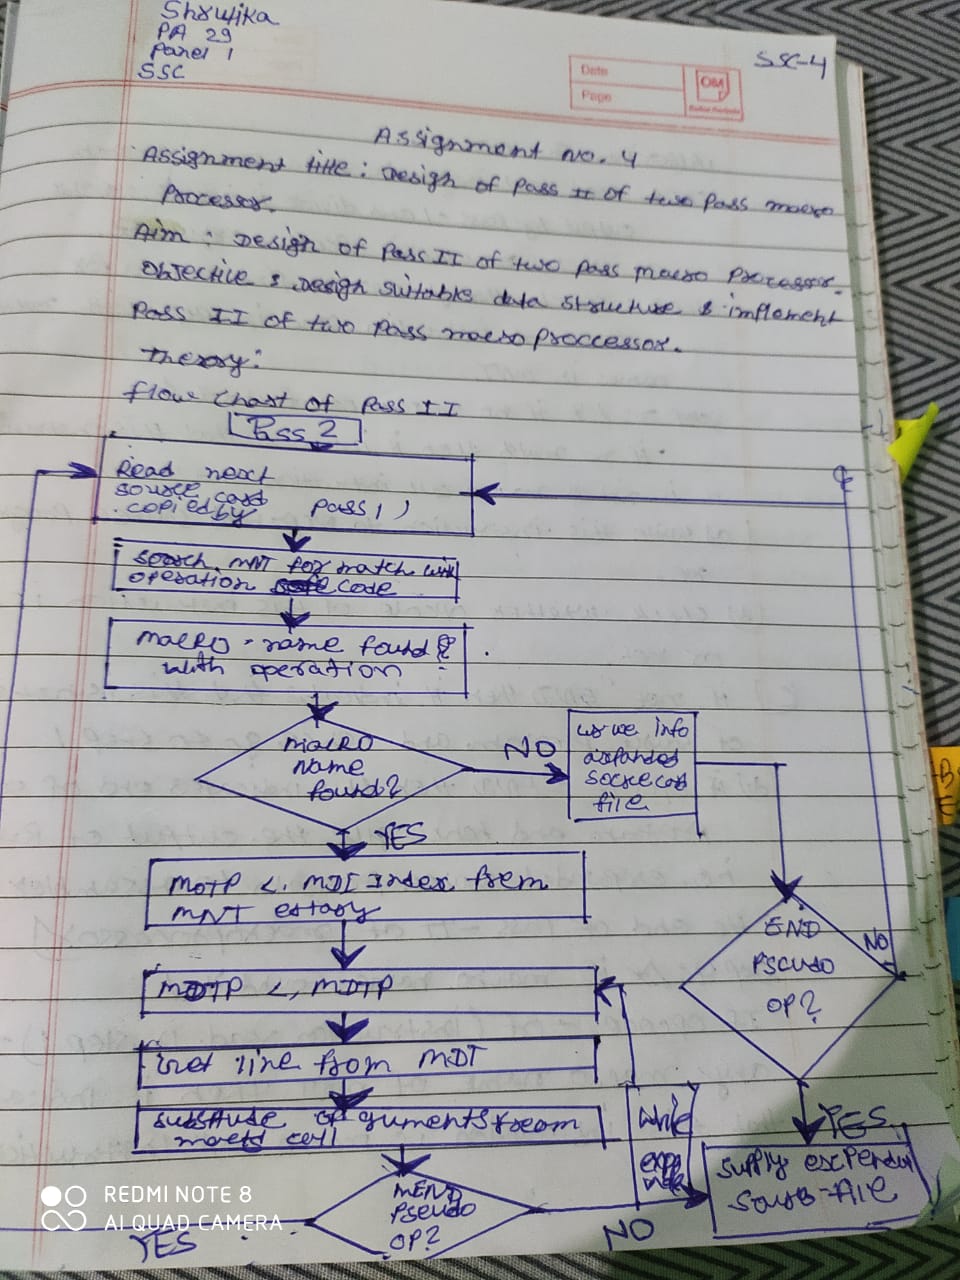 Shrutika
PA 29
Panel 1
SSC
SSC-4
Date
Page
Assignment no. 4
Assignment title : Design of Pass II of two Pass macro
Processor.
Aim : Design of Pass II of two pass macro Processor.
Objective : Design suitable data structure & implement
Pass II of two Pass macro Proccessor.
Theory:
Flow Chart of Pass II
Pass 2
Read next
source card
copied by Pass 1 )
Search MNT for match with
operation code
macro - name found
with operation
macro
name
found?
NO
into
expanded
file
YES
MDTP <. MDT Index from
MNT
MDTP <, MDTP
Get line from MDT
END
PSEUDO
OP?
NO
YES
MEND
PSEUDO
OP?
YES
NO
write
Supply
REDMI NOTE 8
AI QUAD CAMERA